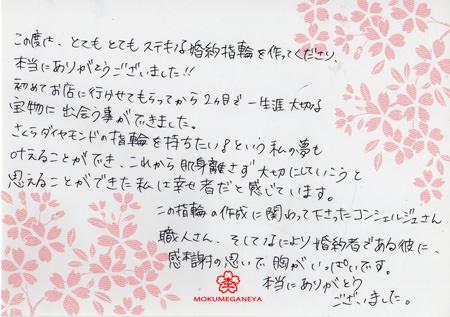 この度は、とてもとてもステキな婚約指輪を作ってくださり、
本当にありがとうございました!!
初めてお店に行かせてもらってから2ヶ月で一生涯大切な
宝物に出会う事ができました。
さくらダイヤモンドの指輪を持ちたい♪という私の夢も
叶えることができ、これから肌身離さず大切にしていこうと
思えることができた私は幸せ者だと感じています。
この指輪の作成に関わって下さったコンシェルジュさん
職人さん、そしてなにより婚約者である彼に、
感謝の思いで胸がいっぱいです。
本当にありがとう
ございました。
MOKUMEGANEYA